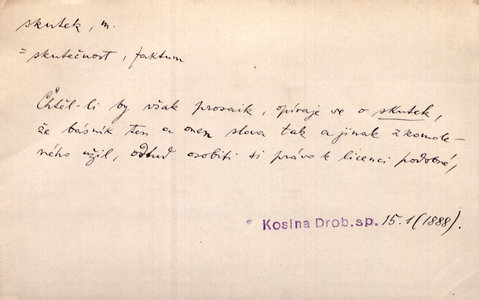 skutek, m.
= skutečnost, faktum
Chtěl-li by však prosaik, opíraje se o skutek,
že básník ten a onen slova tak a jinak zkomole-
ného užil, odtud osobiti si právo k licenci podobné,
Kosina Drob. sp. 15. 1 (1888).